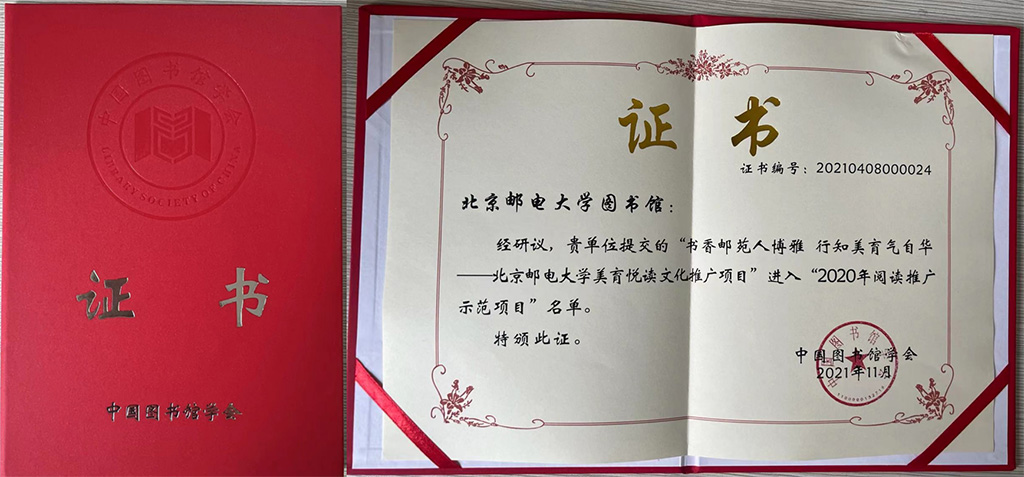 中国图书馆学会
LIBRARY SOCIETY OF CHINA
证 书
中国图书馆学会
证 书
证书编号：20210408000024
北京邮电大学图书馆：
经研议，贵单位提交的“书香邮苑人博雅 行知美育气自华
——北京邮电大学美育悦读文化推广项目”进入“2020年阅读推广
示范项目”名单。
特颁此证。
中国图书馆学会
2021年11月
中国图书馆学会